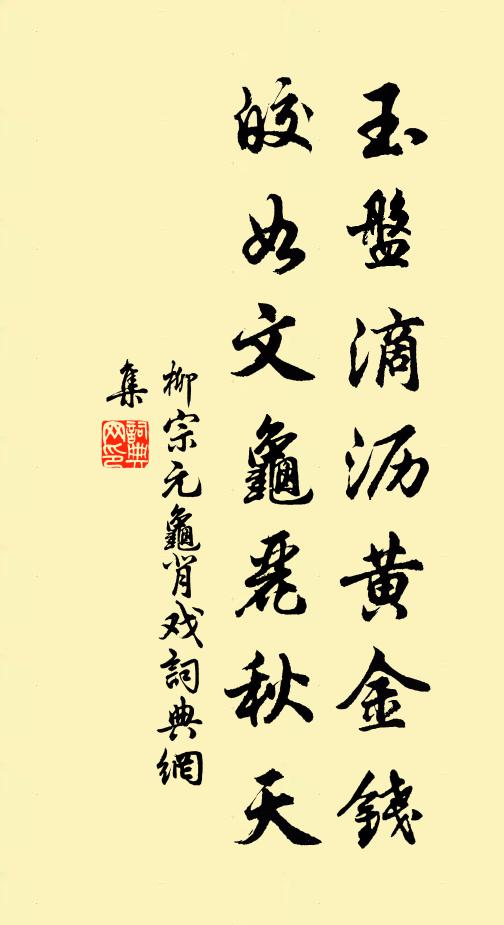 玉盤滴沥黄金錢
皎如文龜麗秋天
柳宗元龜肖戏詞典網
集
詞典网印